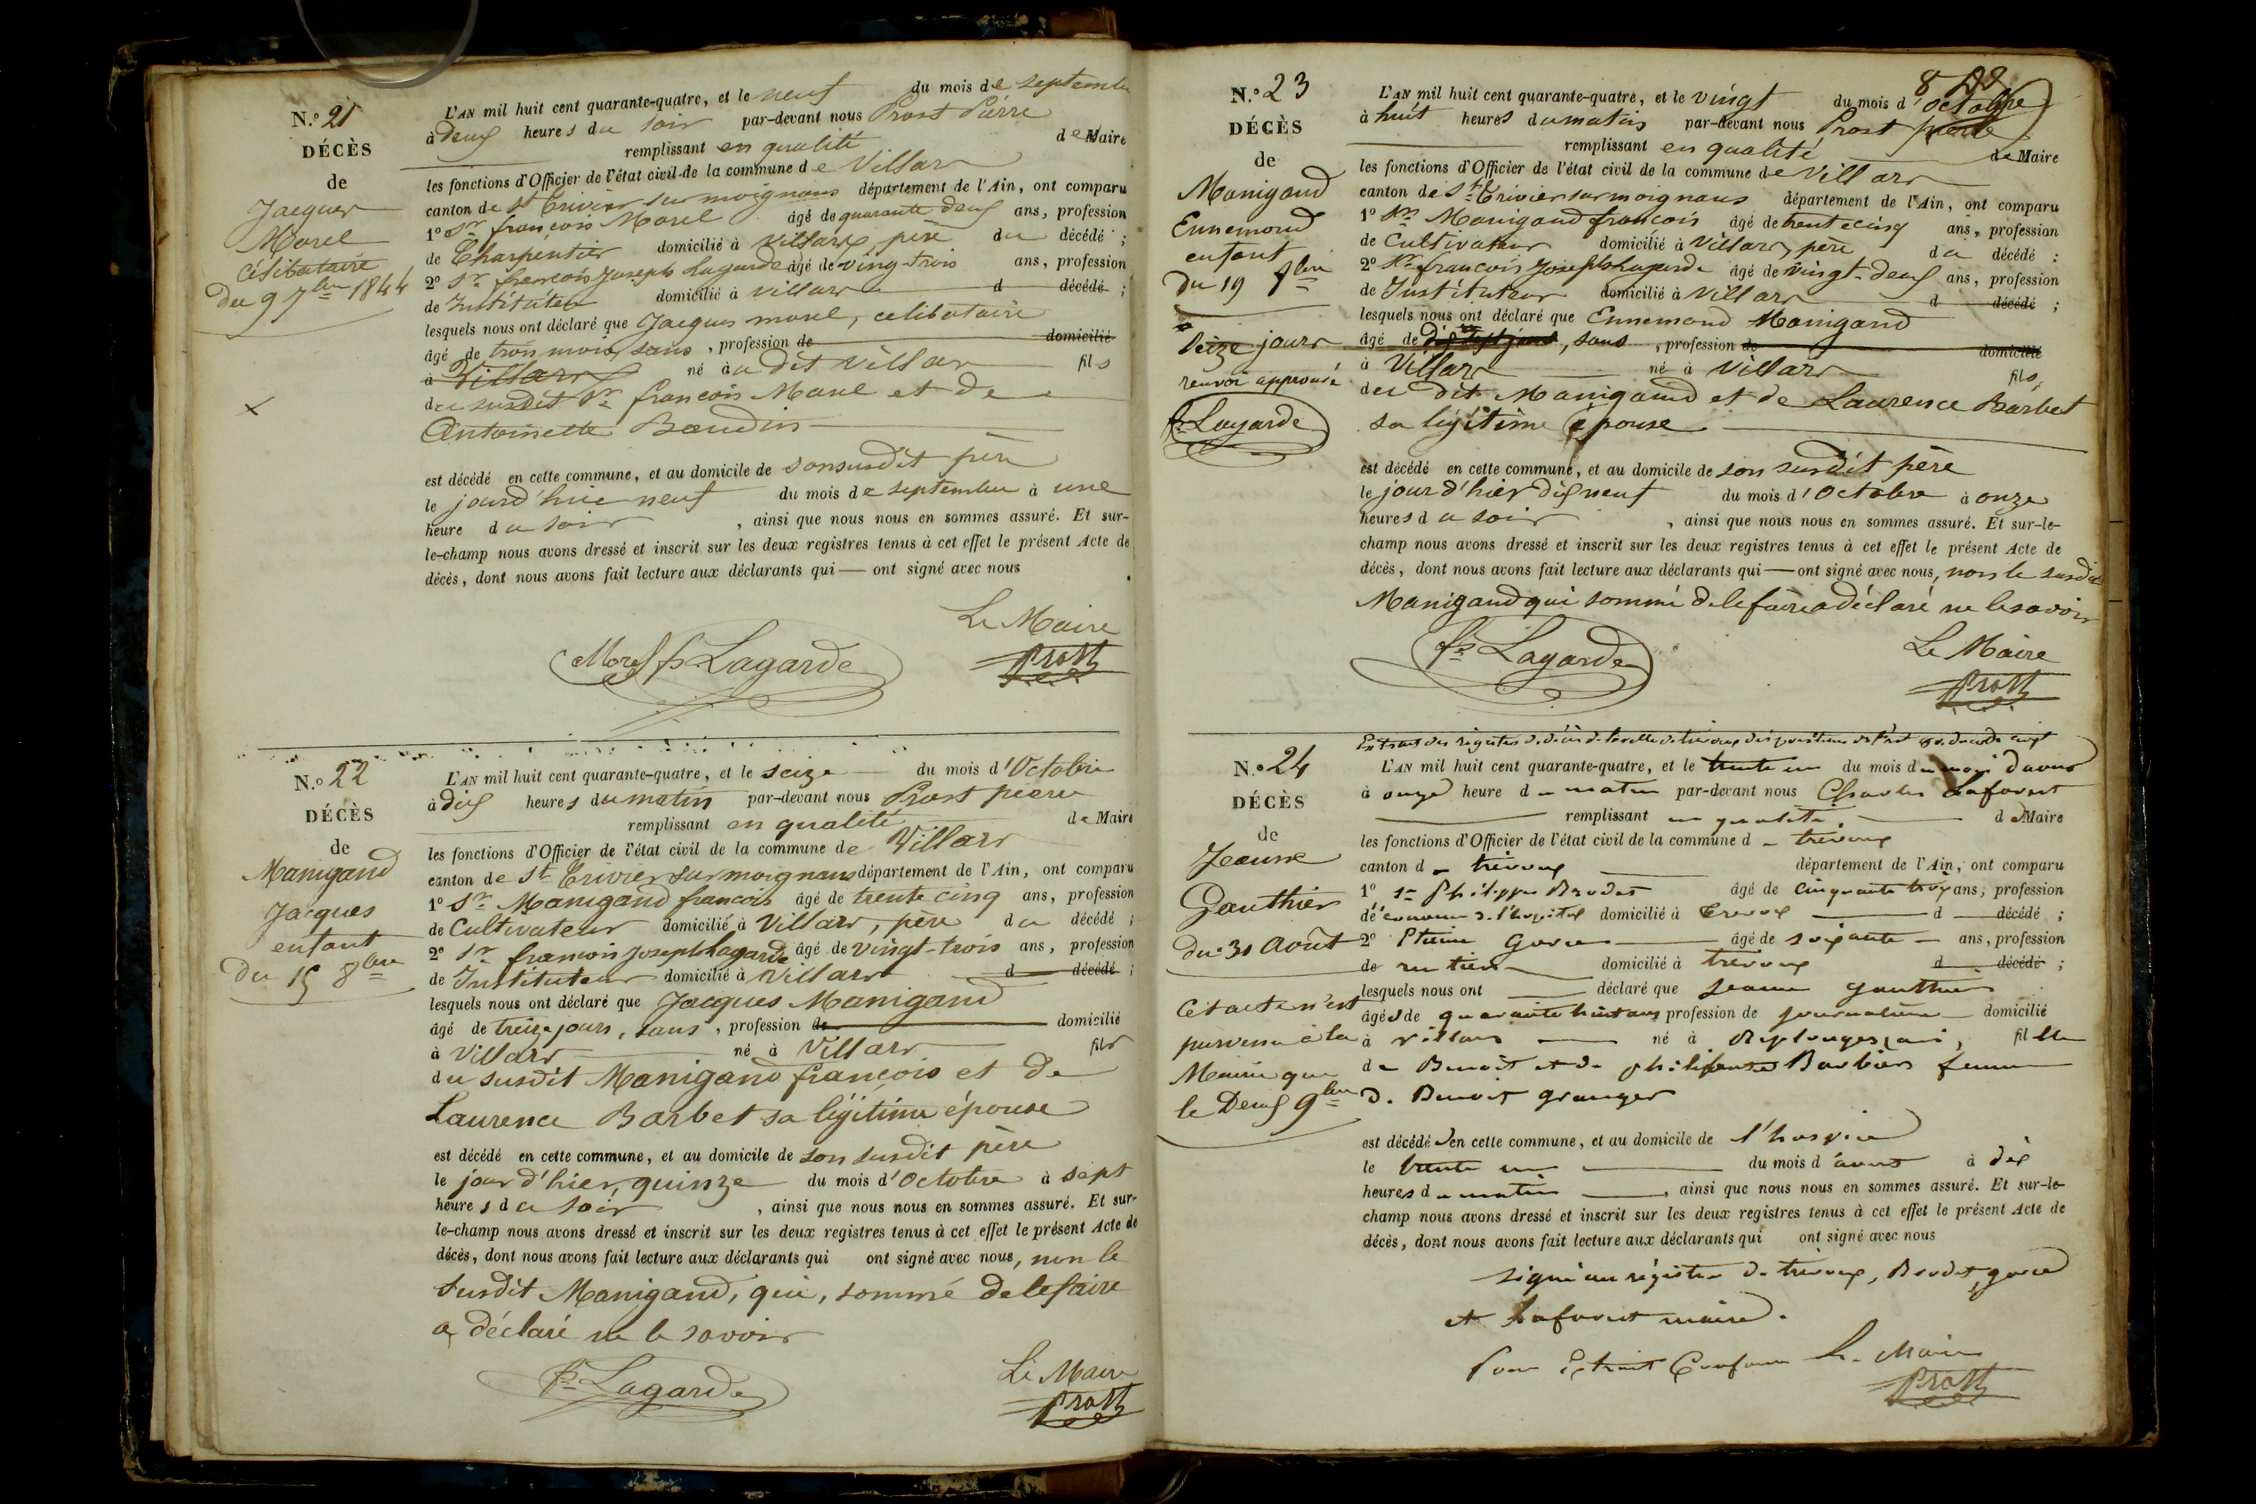 N.º 21
DÉCÈS
de
Jacques
Morel
Célibataire
Du 9 7bre 1844
L'AN mil huit cent quarante-quatre, et le neuf du mois de septembre
à Deux heures du soir par-devant nous Prost Pierre
remplissant en qualité de Maire
les fonctions d'Officier de l'état civil de la commune de Villars
canton de St Trivier sur moignans département de l'Ain, ont comparu
1º Sr françois Morel âgé de quarante deux ans, profession
de Charpentier domicilié à Villars, père du décédé ;
2º Sr françois Joseph Lagarde âgé de vingt-trois ans, profession
de Instituteur domicilié à Villars d décédé ;
lesquels nous ont déclaré que Jacques morel, celibataire
âgé de trois mois, sans , profession de domicilié
à Villars né à u dit Villars fils
du susdit Sr françois Morel et de
Antoinette Baudin
est décédé en cette commune, et au domicile de son susdit père
le jourd'hui neuf du mois de septembre à une
heure du soir , ainsi que nous nous en sommes assuré. Et sur-
le-champ nous avons dressé et inscrit sur les deux registres tenus à cet effet le présent Acte de
décès, dont nous avons fait lecture aux déclarants qui — ont signé avec nous
Le Maire
Morel fs Lagarde Prost
N.º 22
DÉCÈS
de
Manigand
Jacques
enfant
Du 15 8bre
L'AN mil huit cent quarante-quatre, et le seize du mois d'Octobre
à dix heures du matin par-devant nous Prost pierre
remplissant en qualité de Maire
les fonctions d'Officier de l'état civil de la commune de Villars
canton de St Trivier sur moignans département de l'Ain, ont comparu
1º Sr Manigand francois âgé de trente cinq ans, profession
de Cultivateur domicilié à Villars, père du décédé ;
2º Sr francois Joseph Lagarde âgé de vingt-trois ans, profession
de Instituteur domicilié à Villars d décédé ;
lesquels nous ont déclaré que Jacques Manigand
âgé de treize jours, sans , profession de domicilié
à Villars né à Villars fils
du susdit Manigand françois et de
Laurence Barbet sa légitime épouse
est décédé en cette commune, et au domicile de son susdit père
le jour d'hier, quinze du mois d'Octobre à sept
heures du soir , ainsi que nous nous en sommes assuré. Et sur-
le-champ nous avons dressé et inscrit sur les deux registres tenus à cet effet le présent Acte de
décès, dont nous avons fait lecture aux déclarants qui ont signé avec nous, non le
susdit Manigand, qui, sommé de le faire
a déclaré ne le savoir
Le Maire
fs Lagarde Prost
N.º 23
DÉCÈS
de
Manigand
Ennemond
enfant
Du 19 8bre
Seize jours
renvoi approuvé
fs Lagarde
L'AN mil huit cent quarante-quatre, et le vingt du mois d'Octobre
à huit heures du matin par-devant nous Prost pierre
remplissant en qualité de Maire
les fonctions d'Officier de l'état civil de la commune de Villars
canton de St Trivier sur moignans département de l'Ain, ont comparu
1º Sr Manigand françois âgé de trente cinq ans, profession
de Cultivateur domicilié à Villars, père du décédé ;
2º Sr francois Joseph Lagarde âgé de vingt-deux ans, profession
de Instituteur domicilié à Villars d décédé ;
lesquels nous ont déclaré que Ennemond Manigand
âgé de dix sept jours, sans , profession de domicilié
à Villars né à Villars fils
du dit Manigand et de Laurence Barbet
sa légitime épouse
est décédé en cette commune, et au domicile de son susdit père
le jour d'hier dix neuf du mois d'Octobre à onze
heures du soir , ainsi que nous nous en sommes assuré. Et sur-le-
champ nous avons dressé et inscrit sur les deux registres tenus à cet effet le présent Acte de
décès, dont nous avons fait lecture aux déclarants qui — ont signé avec nous, non le susdit
Manigand qui sommé de le faire a déclaré ne le savoir
fs Lagarde Le Maire
Prost
N.º 24
DÉCÈS
de
Jeanne
Gauthier
du 31 Août
Cet acte n'est
parvenu à la
Mairie que
le Deux 9bre
Extrait des registres de décès de la ville de trévoux
L'AN mil huit cent quarante-quatre, et le trente un du mois du mois d'aout
à onze heure du matin par-devant nous Charles Laforest
remplissant en qualité de Maire
les fonctions d'Officier de l'état civil de la commune d trévoux
canton d trévoux département de l'Ain, ont comparu
1º Sr Philippe Brodet âgé de cinquante trois ans, profession
de économe de l'hopital domicilié à Trevoux d décédé ;
2º âgé de soixante ans, profession
de rentier domicilié à trévoux d décédé ;
lesquels nous ont déclaré que Jeanne Gauthier
âgée de quarante huit ans profession de journalière domicilié
à villars né à Replonges, ain, fille
de Benoît et de philiberte Barbier femme
de Benoit Granger
est décédé en cette commune, et au domicile de l'hospice
le trente un du mois d'aout à dix
heures du matin , ainsi que nous nous en sommes assuré. Et sur-le-
champ nous avons dressé et inscrit sur les deux registres tenus à cet effet le présent Acte de
décès, dont nous avons fait lecture aux déclarants qui ont signé avec nous
signé au régistre de trévoux, Brodet,
et Laforest maire.
Pour Extrait Conforme Le Maire
Prost